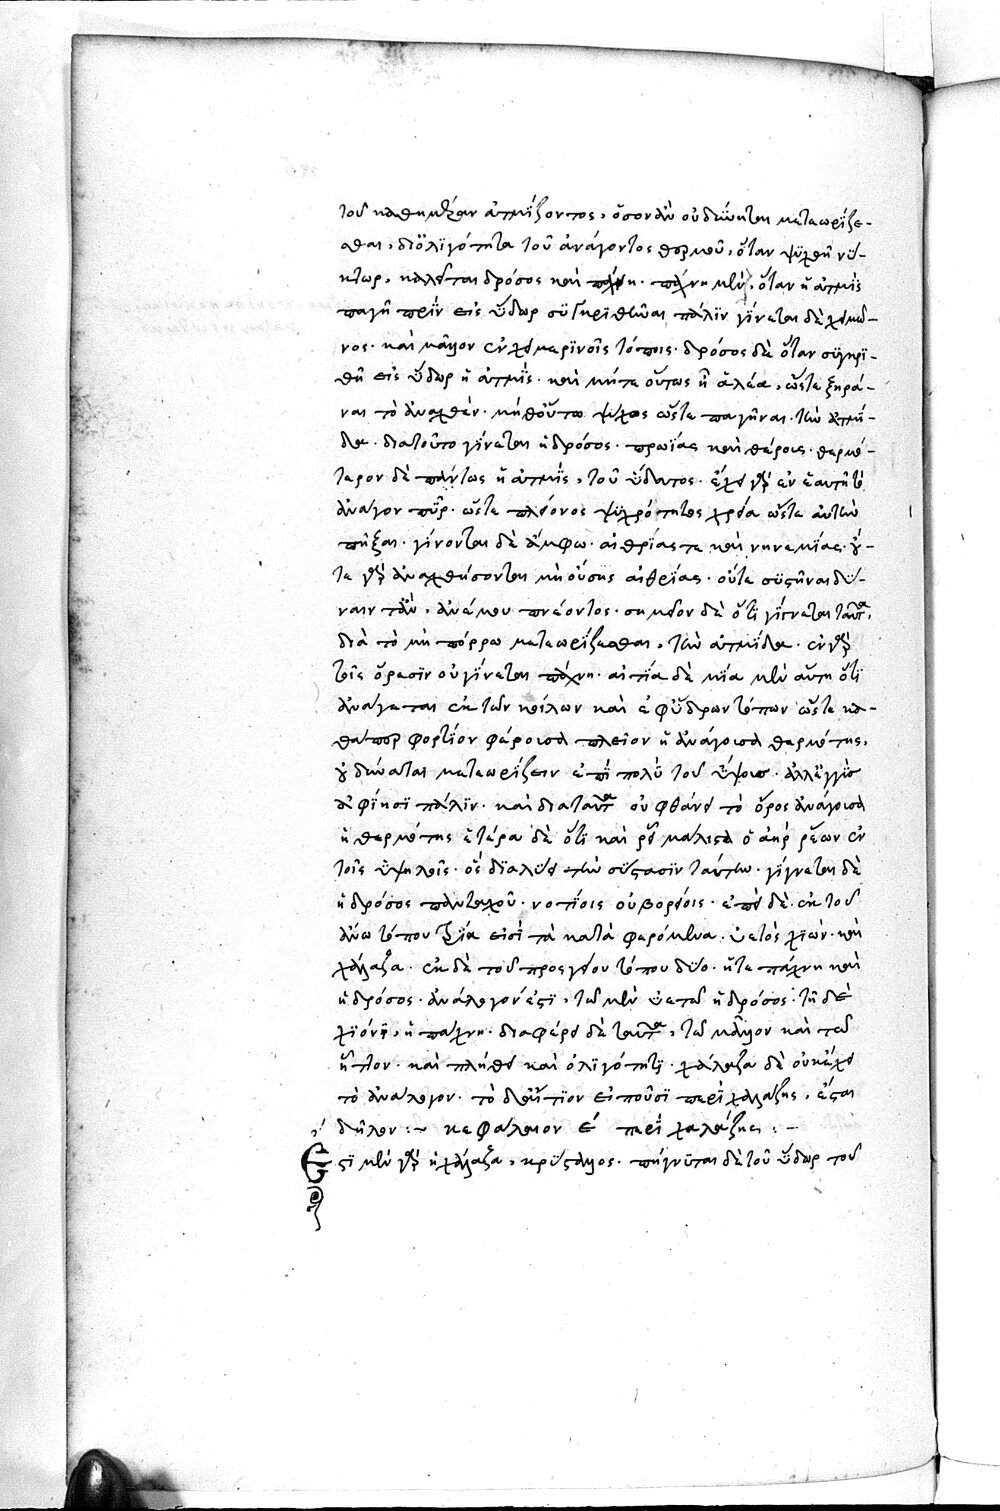 τοῦ καθημέραν ἀτμίζοντος, ὅσον ἂν οὐ δύνηται μετεωρίζε-
σθαι, δι' ὀλιγότητα τοῦ ἀνάγοντος θερμοῦ, ὅταν ψυχθῆ νύ-
κτωρ, καλεῖται δρόσος καὶ πάχνη· πάχνη μὲν, ὅταν ἡ ἀτμὶς
παγῆ πρὶν εἰς ὕδωρ συγκριθῆναι πάλιν γίνεται δὲ χειμῶ-
νος· καὶ μᾶλλον ἐν χειμερινοῖς τόποις· δρόσος δὲ ὅταν συγκρι-
θῆ εἰς ὕδωρ ἡ ἀτμὶς· καὶ μήτε οὕτως ἢ ἀλέα, ὥστε ξηρά-
ναι τὸ ἀναχθέν· μήθ' οὕτω ψῦχος ὥστε παγῆναι τὴν ἀτμί-
δα· διατοῦτο γίνεται ἡ δρόσος· πρωΐας καὶ θέρους· θερμό-
τερον δὲ πάντως ἡ ἀτμὶς, τοῦ ὕδατος· ἔχει γὰρ ἐν ἑαυτῆ τὸ
ἀνάγον πῦρ· ὥστε πλείονος ψυχρότητος χρεία ὥστε αὐτὴν
πῆξαι· γίνονται δὲ ἄμφω· αἰθρίας τε καὶ νηνεμίας· οὔ-
τε γὰρ ἀναχθήσονται μὴ οὔσης αἰθρίας· οὔτε συστῆναι δύ-
ναιντ' ἂν, ἀνέμου πνέοντος· σημεῖον δὲ ὅτι γίγνεται ταῦτα,
διὰ τὸ μὴ πόρρω μετεωρίζεσθαι, τὴν ἀτμίδα· ἐν γὰρ
τοῖς ὄρεσιν οὐ γίνεται πάχνη· αἰτία δὲ μία μὲν αὕτη ὅτι
ἀνάγεται ἐκ τῶν κοίλων καὶ ἐφύδρων τόπων ὥστε κα-
θάπερ φορτίον φέρουσα πλεῖον ἡ ἀνάγουσα θερμότης,
οὐ δύναται μετεωρίζειν ἐπὶ πολὺ τοῦ ὕψους· ἀλλ' ἐγγὺς
ἀφίησι πάλιν· καὶ διὰ ταῦτα οὐ φθάνει τὸ ὄρος ἀνάγουσα
ἡ θερμότης ἑτέρα δὲ ὅτι καὶ ῥεῖ μάλιστα ὁ ἀὴρ ῥέων ἐν
τοῖς ὑψηλοῖς· ὃς διαλύει τὴν σύστασιν ταύτην· γίγνεται δὲ
ἡ δρόσος πανταχοῦ· νοτίοις οὐ βορείοις· ἐπεὶ δὲ ἐκ τοῦ
ἄνω τόπου τρία εἰσὶ τὰ κατὰ φερόμενα· ὑετὸς χιών· καὶ
χάλαζα· ἐκ δὲ τοῦ προσγείου τόπου δύο· ἥτε πάχνη καὶ
ἡ δρόσος· ἀνάλογόν ἐστι, τῶ μὲν ὑετῶ ἡ δρόσος· τῆ δὲ
χιόνι, ἡ πάχνη· διαφέρει δὲ ταῦτα, τῶ μᾶλλον καὶ τῶ
ἧττον· καὶ πλήθει καὶ ὀλιγότητι· χάλαζα δὲ οὐκ ἔχει
τὸ ἀνάλογον· τὸ δ' αἴτιον εἰποῦσι περὶ χαλάζης, ἔσται
δῆλον :~ κεφάλαιον ε΄ περὶ χαλάζης :~
Ἔστι μὲν γὰρ ἡ χάλαζα, κρύσταλλος· πήγνυται δὲ τοῦ ὕδωρ τοῦ